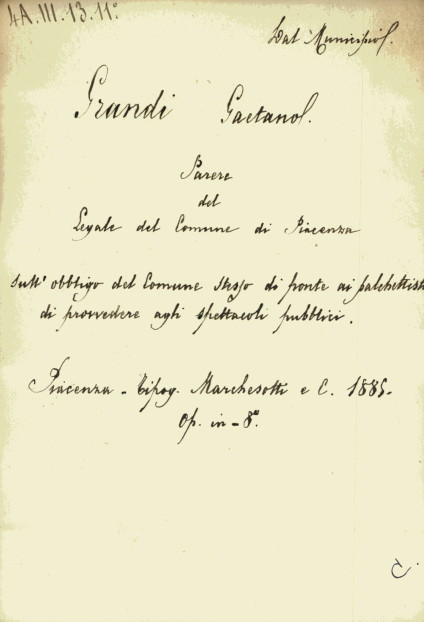 4A.III.13.11°
Dal Municipio.
Grandi Gaetano.
Parere
del
Legale del Comune di Piacenza
sull' obbligo del Comune stesso di fronte ai palchettisti
di provvedere agli spettacoli pubblici.
Piacenza - Tipog. Marchesotti e C. 1885-
Op. in - 8°.
C.